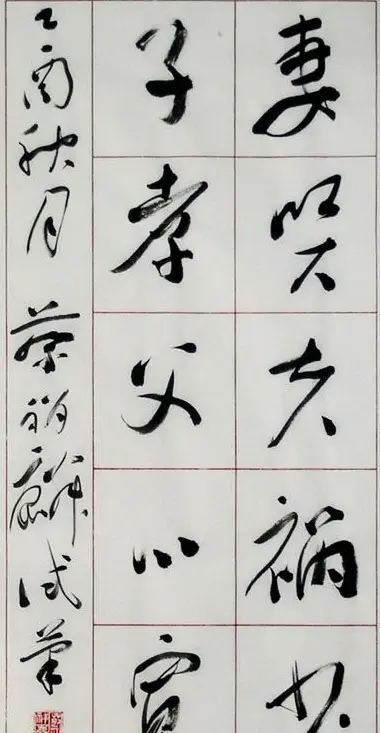 妻贤夫祸少
子孝父心宽
乙酉秋月 蔡祥麟试笔